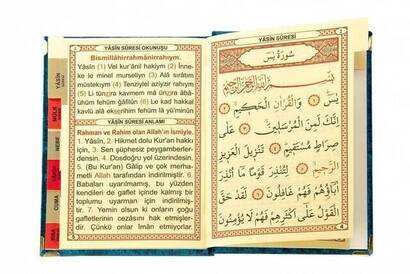 YÂSÎN SÛRESİ OKUNUŞU
Bismillâhirrahmânirrahıym.
Yâsîn (1) Vel kur'ânil hakiym (2) İnne-
ke le minel murseliyn (3) Alâ sırâtım
müstekıym (4) Tenziylel aziyzir rahıym
(5) Li tünzira kavmem mâ ünzira âbâ-
ühüm fehüm ğâfilûn (6) Le kad hakkal
kavlü alâ ekserihim fehüm lâ yü'minûn
YÂSÎN SÛRESİ ANLAMI
Rahman ve Rahim olan Allah'ın İsmiyle.
1. Yâsîn, 2. Hikmet dolu Kur'an hakkı
için, 3. Sen şüphesiz peygamberler-
densin. 4. Dosdoğru yol üzerindesin.
5. (Bu Kur'an) Gâlip ve çok merha-
metli Allah tarafından indirilmiştir. 6.
Babaları uyarılmamış, bu yüzden
kendileri de gaflet içinde kalmış bir
toplumu uyarman için indirilmiştir.
7. Yemin olsun ki onların çoğu
gafletlerinin cezasını hak etmişler-
dir. Çünkü onlar İman etmiyorlar.
YÂSÎN
MÜLK
NEBE
CUMA
سُورَةُ يٰسٓ
بِسْمِ اللّٰهِ الرَّحْمٰنِ الرَّحِيمِ
يٰسٓ ۝١ وَالْقُرْاٰنِ الْحَكِيمِ ۝٢
اِنَّكَ لَمِنَ الْمُرْسَلِينَ ۝٣ عَلٰى
صِرَاطٍ مُسْتَقِيمٍ ۝٤ تَنْزِيلَ الْعَزِيزِ
الرَّحِيمِ ۝٥ لِتُنْذِرَ قَوْمًا مَٓا اُنْذِرَ
اٰبَٓاؤُهُمْ فَهُمْ غَافِلُونَ ۝٦ لَقَدْ حَقَّ
الْقَوْلُ عَلٰٓى اَكْثَرِهِمْ فَهُمْ لَا يُؤْمِنُونَ
4